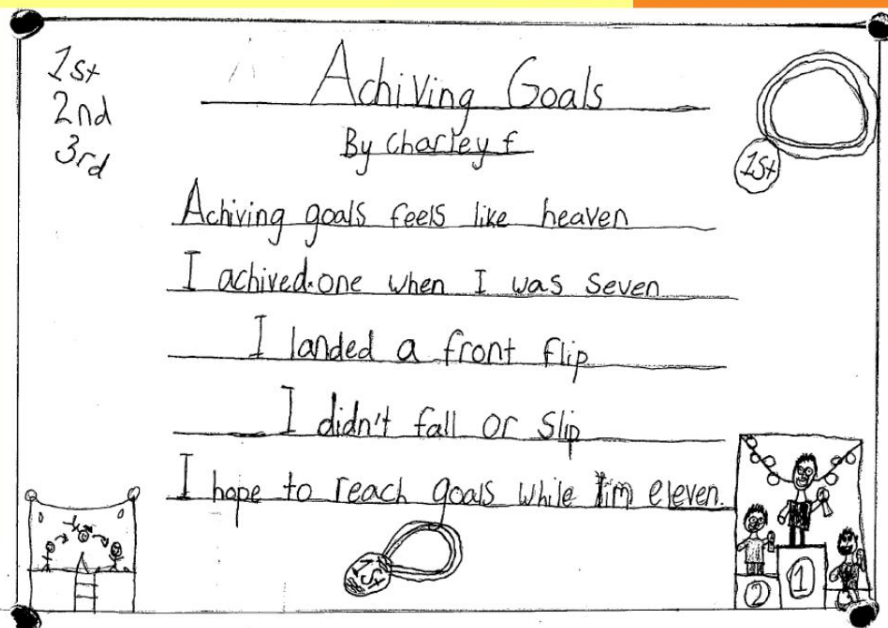 1st
2nd
3rd
Achiving Goals
By Charley f
1st
Achiving goals feels like heaven
I achived one when I was seven
I landed a front flip
I didn't fall or slip
I hope to reach goals while I'm eleven.
1st
2
1